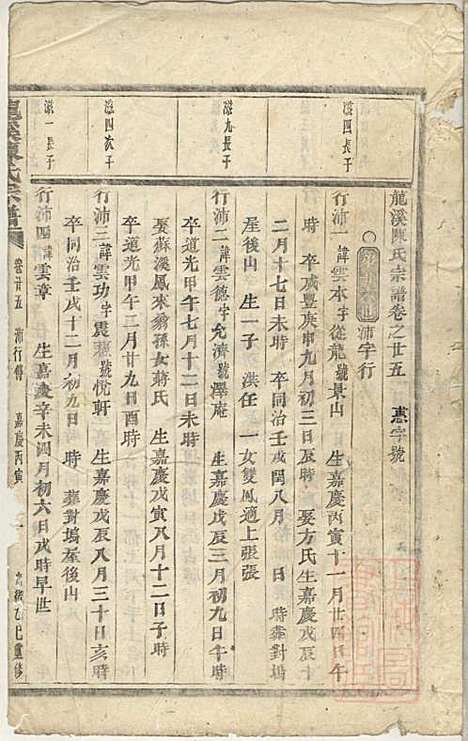 龍溪陳氏宗譜卷之廿五　惠字號
沛字行
滋四長子
行沛一諱雲本字從龍號景山　生嘉慶丙寅十一月廿四日午
時　卒咸豐庚申九月初三日辰時　娶方氏生嘉慶戊辰十
二月十七日未時　卒同治壬戌閏八月　日　時葬對塢
屋後山　生一子　洪任　一女雙鳳適上張張
滋九長子
行沛二諱雲德字允濟號澤庵　生嘉慶戊辰三月初九日午時
卒道光甲午七月十二日未時
娶蘇溪鳳來翁孫女蔣氏　生嘉慶戊寅八月十二日子時
卒道光甲午三月廿九日酉時
滋四次子
行沛三諱雲功字震龍號悅軒　生嘉慶戊辰八月三十日亥時
卒同治壬戌十二月初九日　時　葬對塢屋後山
滋一長子
行沛四諱雲章　生嘉慶辛未閏月初六日戌時早世
龍溪陳氏宗譜　卷廿五　沛行傳　嘉慶丙寅　一　光緒乙巳重修